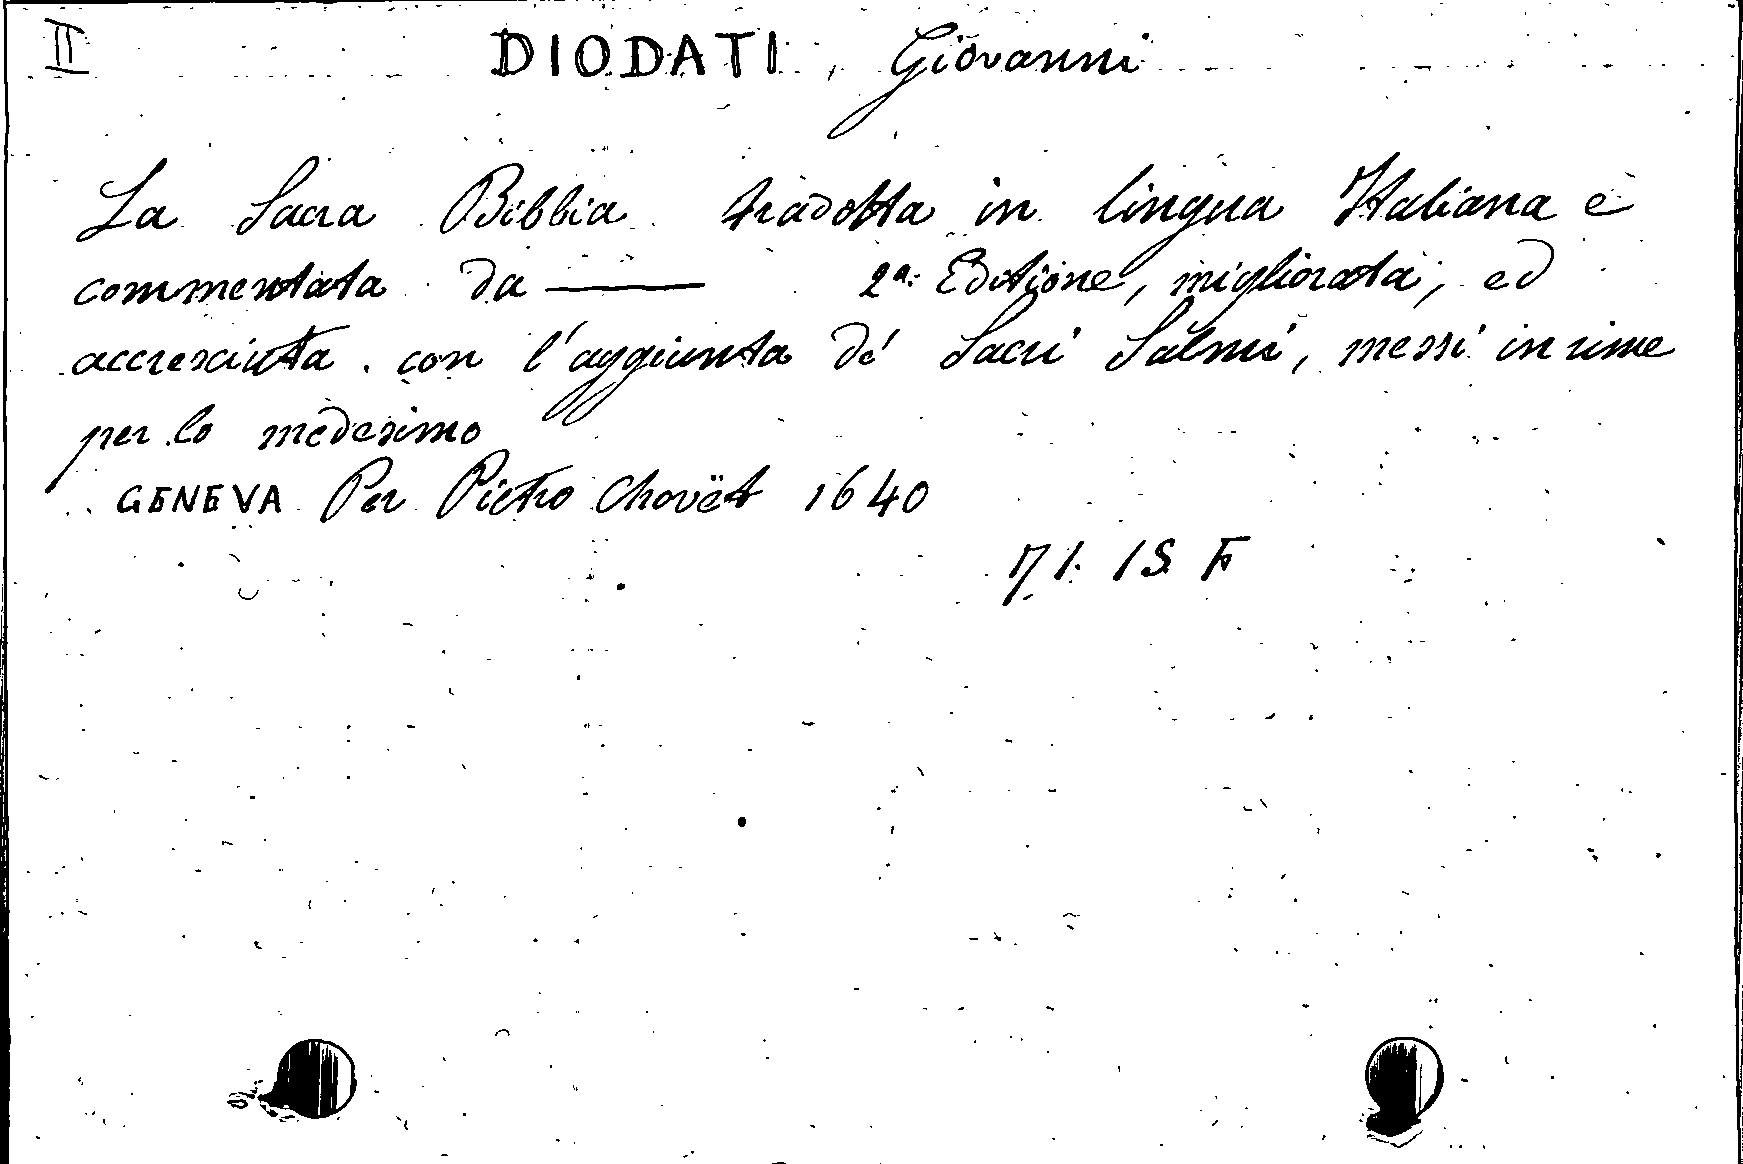 II DIODATI, Giovanni
La Sacra Bibbia tradotta in lingua Italiana e
commentata da —— 2a: Editione, migliorata, ed
accresciuta. con l'aggiunta de' Sacri Salmi, messi in rime
per lo medesimo
GENEVA Per Pietro Chovët 1640
71. 15 F